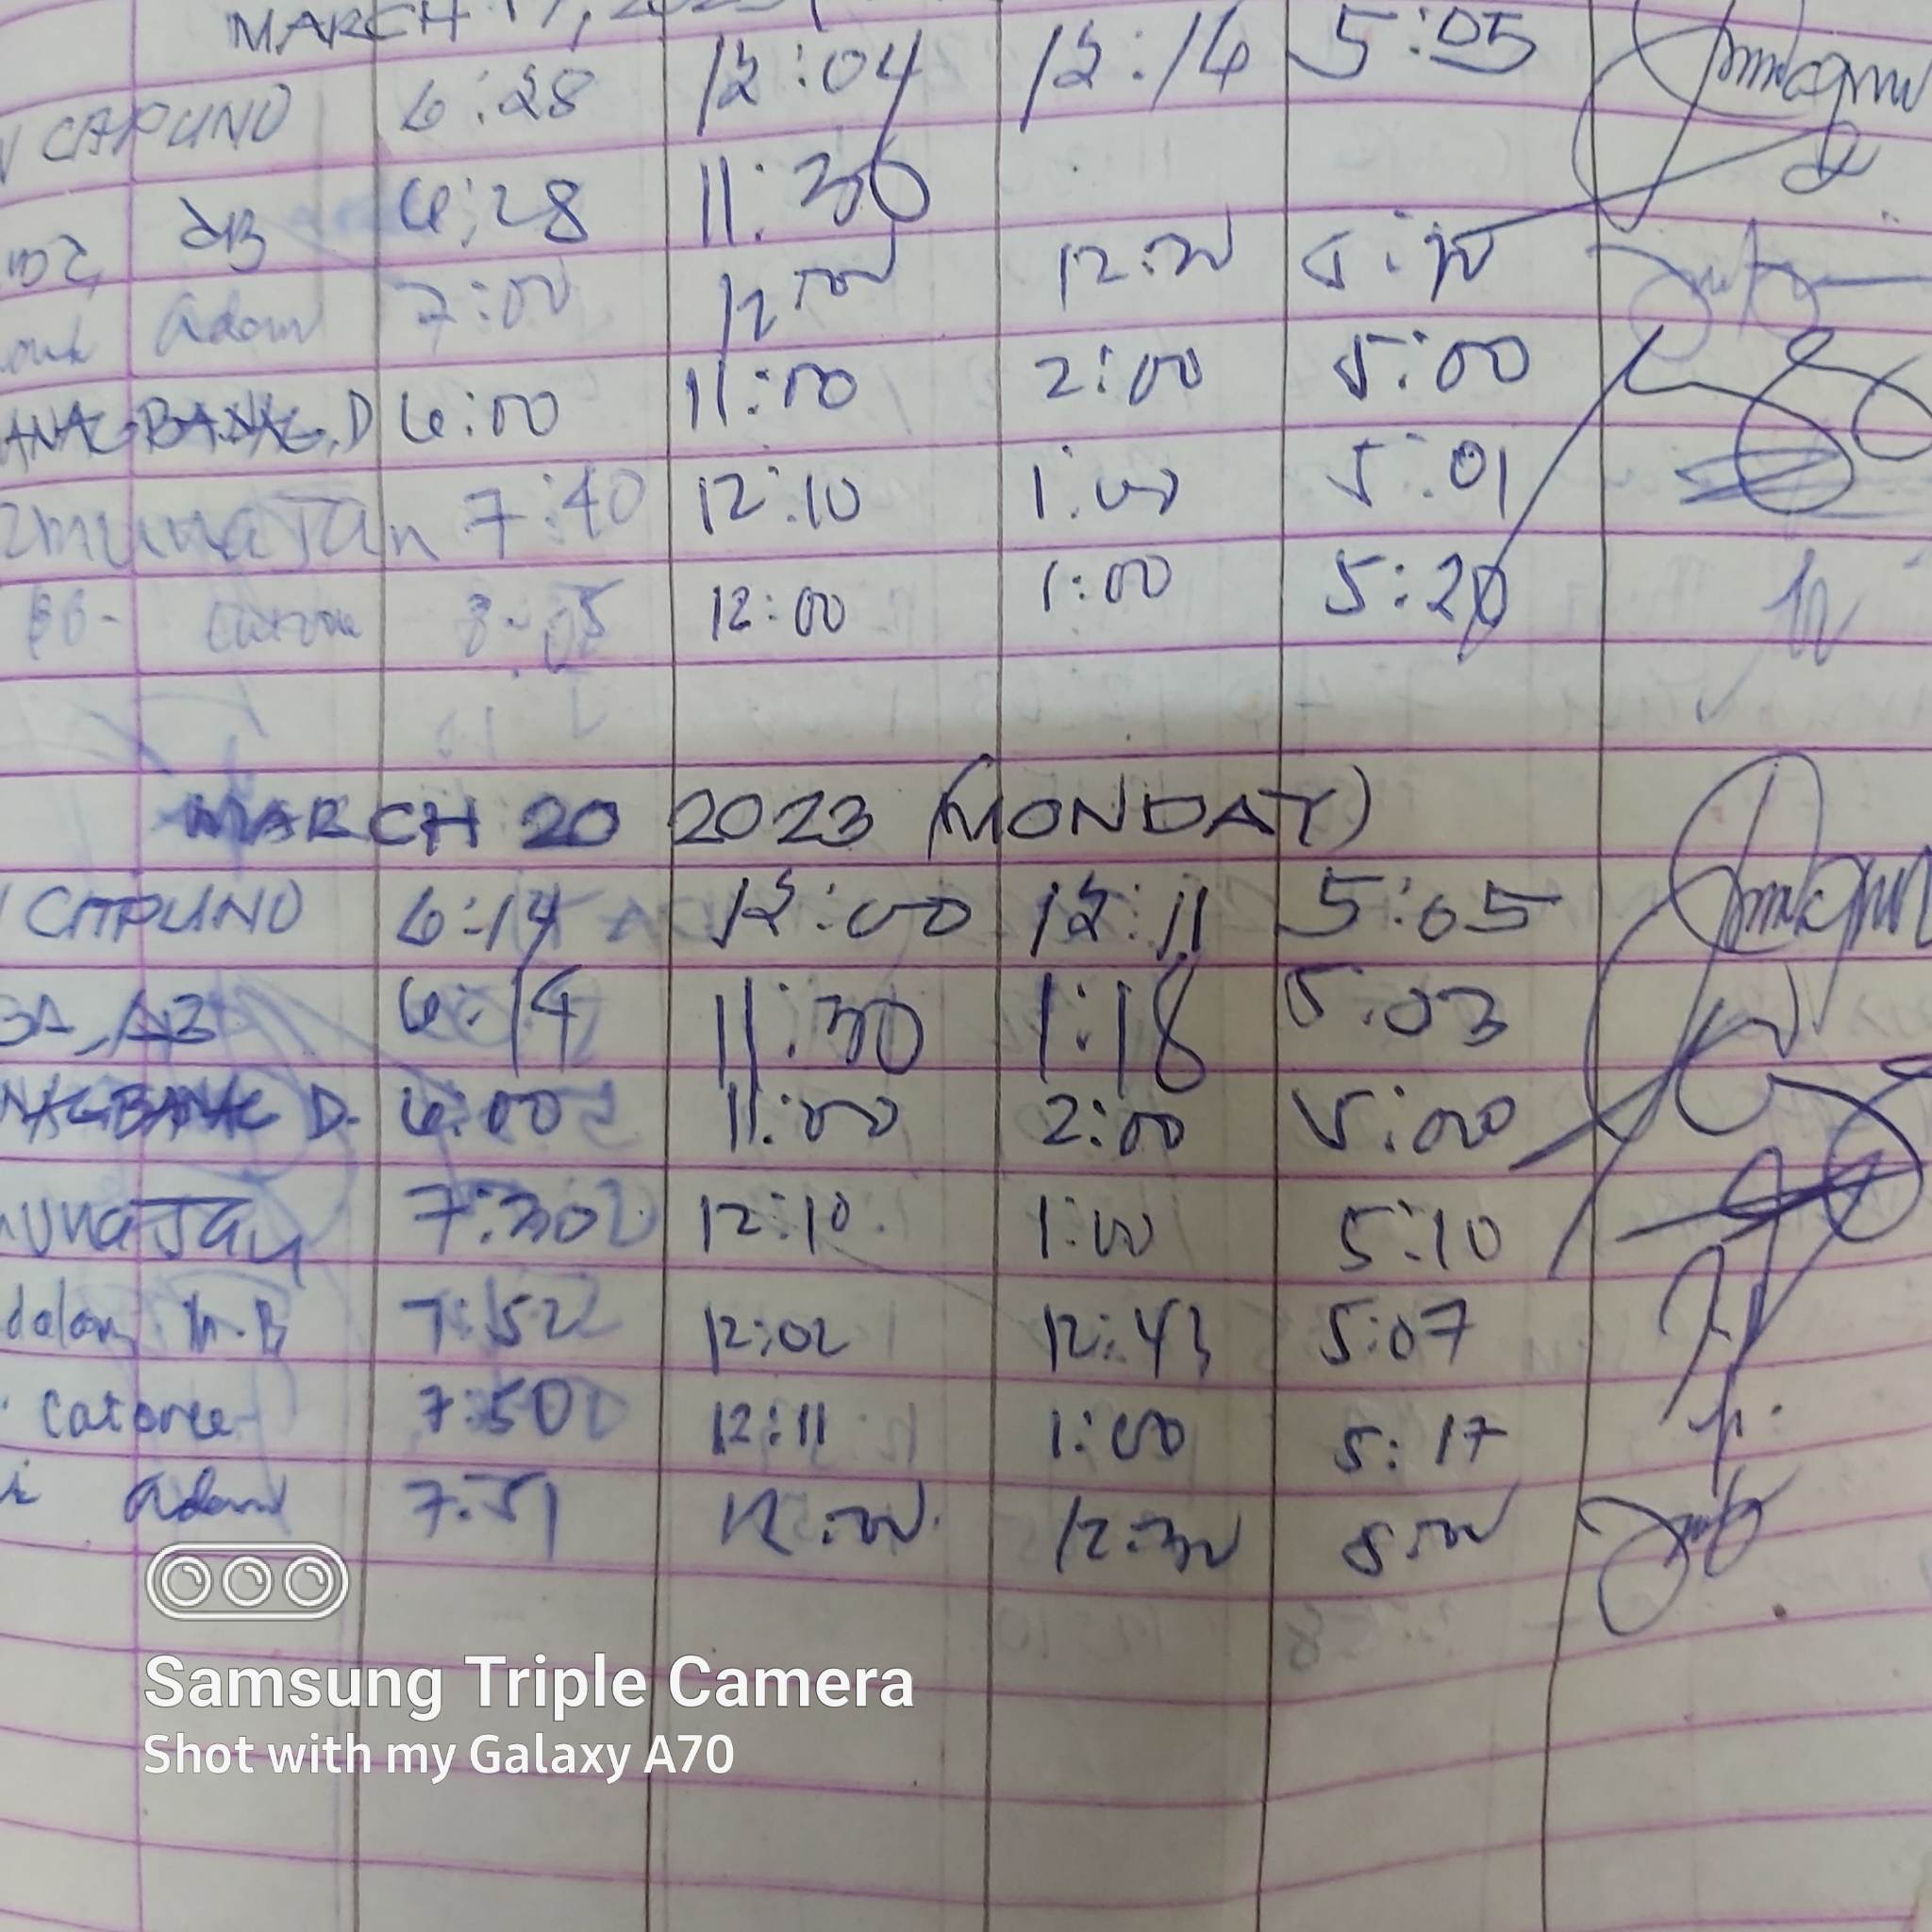 MARCH 17, 2023 (
CAPUNO 6:28 12:04 12:16 5:05
AB 6:28 11:30
Adam 7:00 12:00 12:30
ANAGBANAG, D 6:00 11:00 2:00 5:00
munaJan 7:40 12:10 1:00 5:01
12:00 1:00 5:20
MARCH 20 2023 (MONDAY)
CAPUNO 6:14 12:00 12:11 5:05
BA, AB 6:14 11:30 1:18 5:03
NAGBANAG D. 6:00 11:00 2:00 5:00
unaJan 7:30 12:10 1:00 5:10
dalan M.B 7:52 12:02 12:43 5:07
Catorce 7:50 12:11 1:00 5:17
Adam 7:51 12:00 12:30 5:00
Samsung Triple Camera
Shot with my Galaxy A70